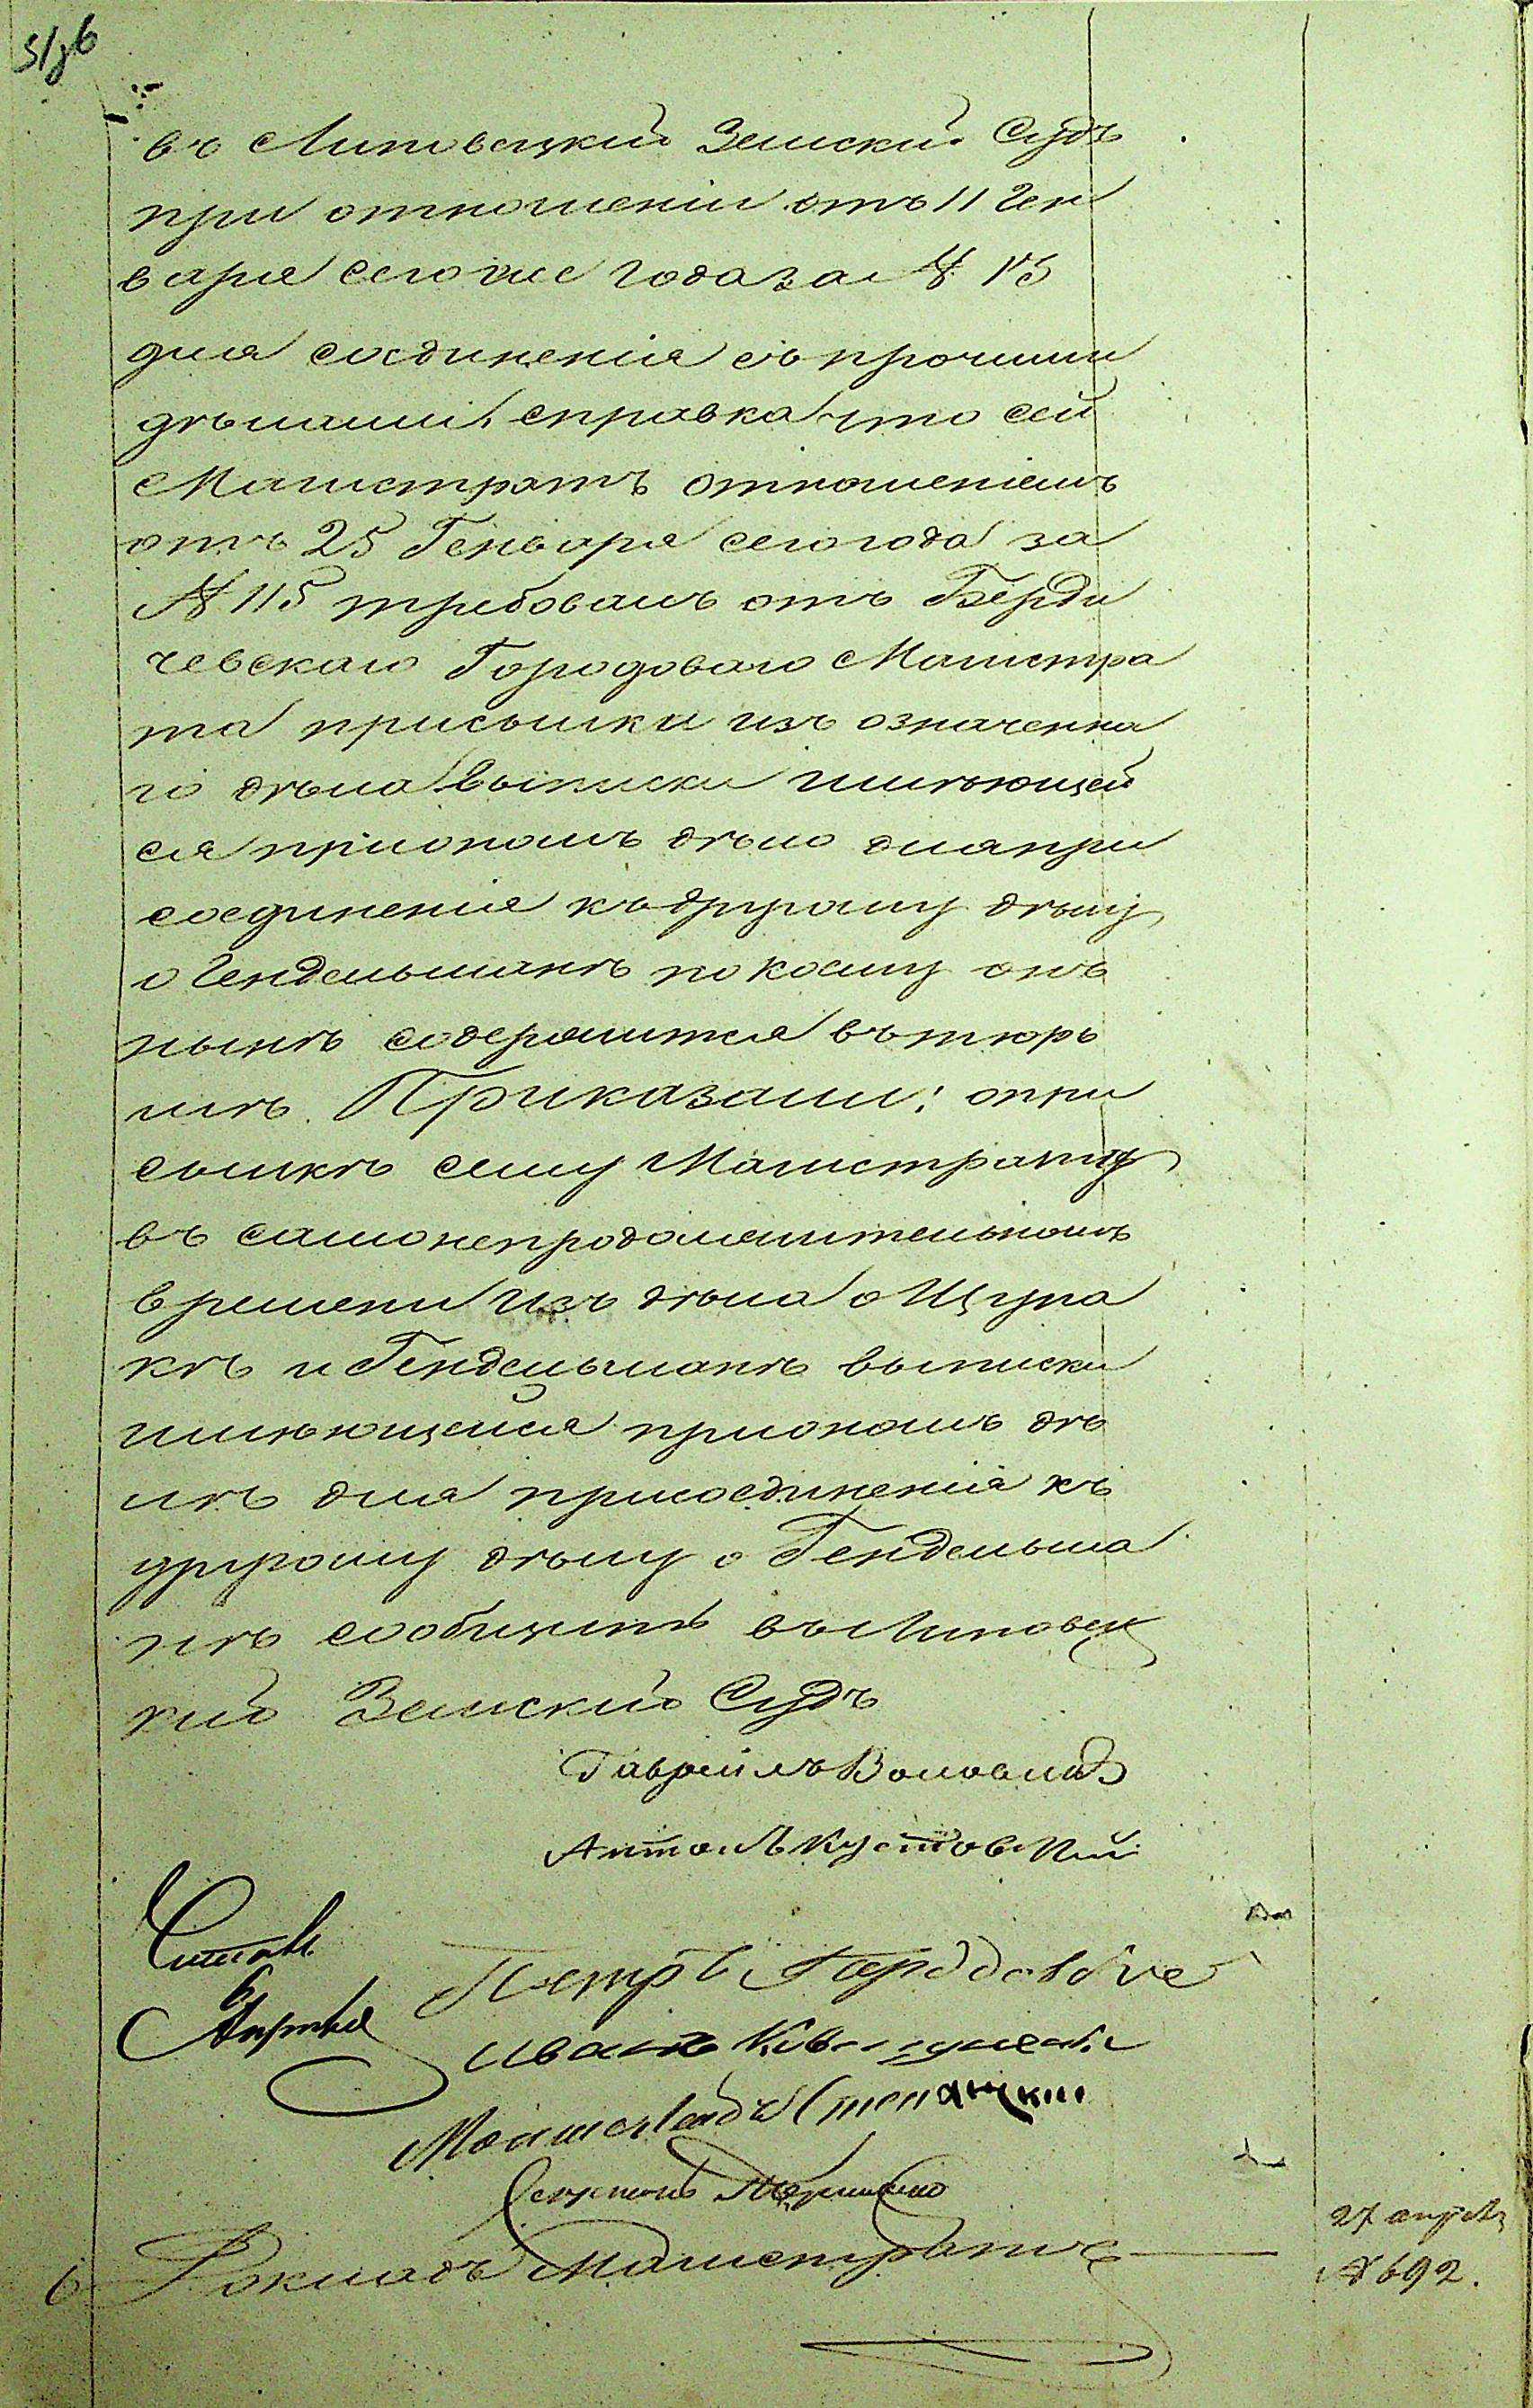 въ Липовецкій Земскій Судъ
при отношеніи отъ 11 Ген
варя сего же года за № 173
для соединенія съ прочими
дѣлами, справка что сей
Магистратъ отношеніемъ
отъ 25 Генваря сего года за
№ 115 требовалъ отъ Берди
чевскаго Городоваго Магистра
та присылки изъ означенна
го дѣла выписки имѣющей
ся при ономъ дѣло для при
соединенія къ другому дѣлу
о Гендельманѣ по коему онъ
нынѣ содержится въ тюрь
мѣ. Приказали: о при
сылкѣ сему Магистрату
въ самонепродолжительномъ
времени изъ дѣла о Щупа
кѣ и Гендельманѣ выписки
имѣющейся при ономъ дѣ
лѣ для присоединенія къ
другому дѣлу о Гендельма
нѣ сообщить въ Липовец
кій Земскій Судъ
Гавріилъ
Антонъ Кустовскій
Читалъ
6 Апрѣля
Петръ
Иванъ
Секретарь
6 Докладъ Магистрату
27 апрѣля
№ 692.